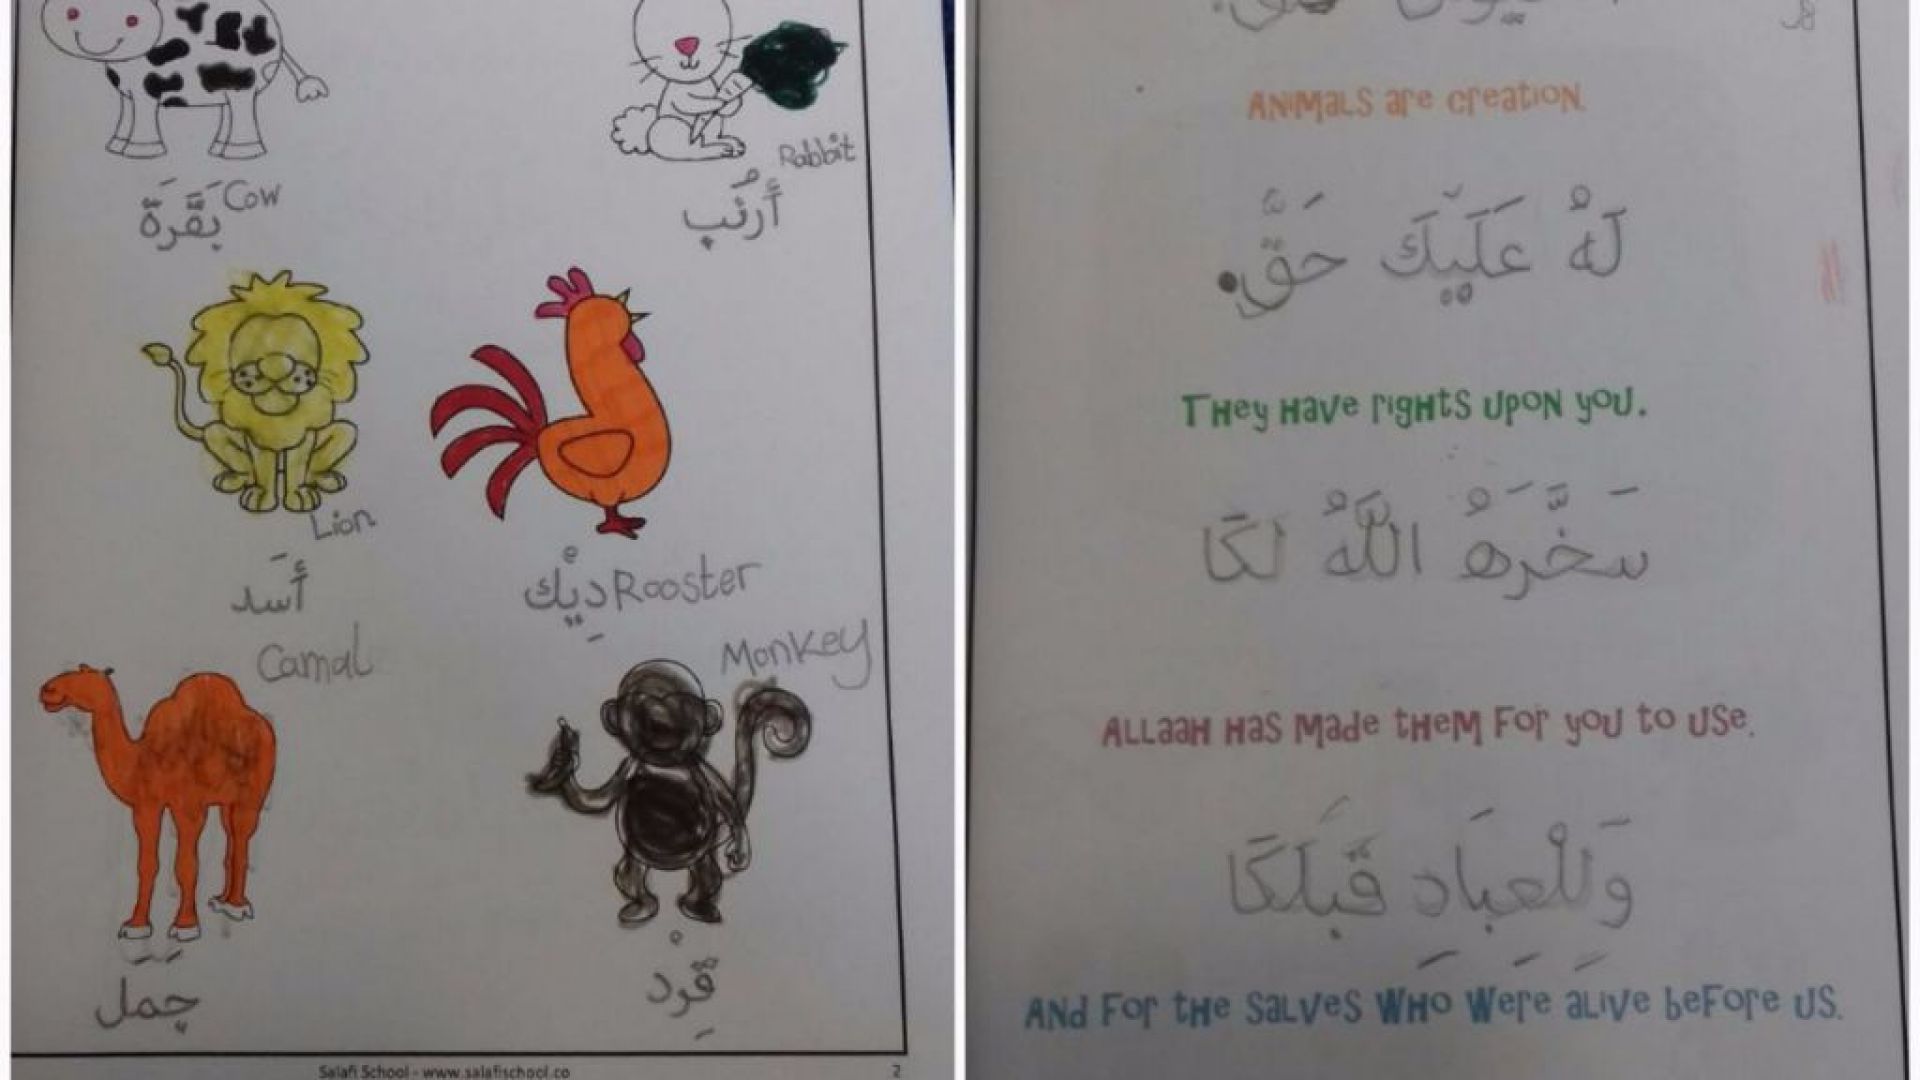 Rabbit
Cow
بَقَرَة
أَرنُب
Lion
أَسَد
دِيْك Rooster
Camal
Monkey
جَمَل
قِرْد
Salafi School - www.salafischool.co
2
Animals are creation.
لَهُ عَلَيكَ حَقّ
They have rights upon you.
سَخَّرَهُ اللَّهُ لَكَا
Allaah has made them for you to use.
وَلِلْعِبَادِ قَبلَكَا
And for the salves who were alive before us.